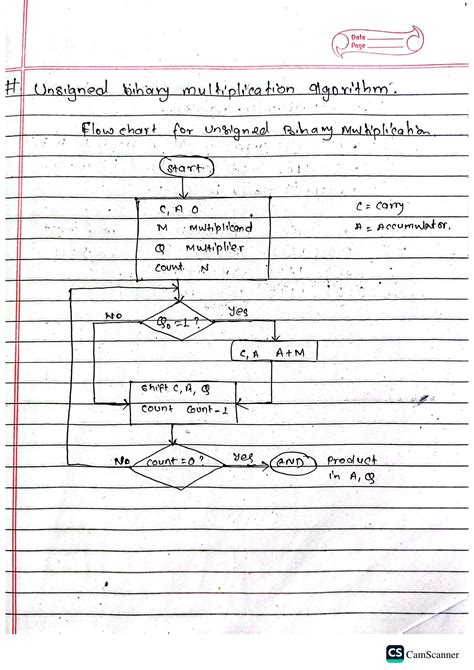 Date
Page
# Unsigned binary multiplication algorithm.
Flow chart for unsigned Binary Multiplication.
start
C, A 0
M Multiplicand
Q Multiplier
count N
C = Carry
A = Accumulator.
Q0 = 1 ?
No
Yes
C, A A+M
shift C, A, Q
count count-1
count = 0 ?
No
Yes
END
Product
in A, Q
CS CamScanner